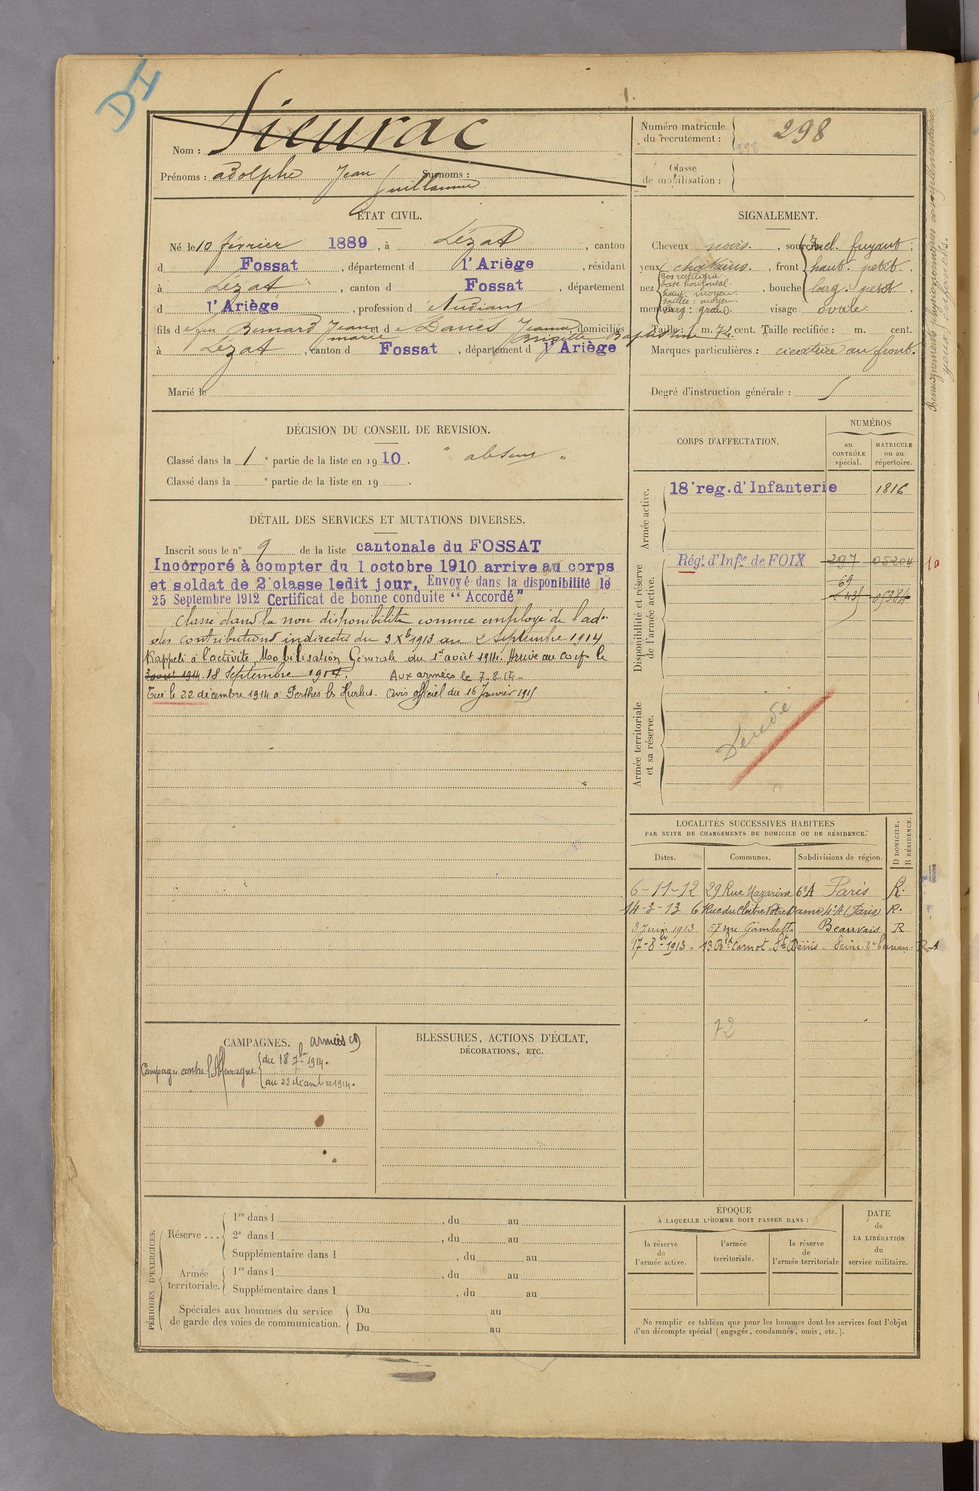 DI
Nom : Sieurac
Prénoms : adolphe Jean Guillaume Surnoms :
Numéro matricule du recrutement : 298
Classe de mobilisation :
ÉTAT CIVIL.
Né le 10 février 1889, à Lézat, canton
d Fossat, département d l'Ariège, résidant
à Lézat, canton d Fossat, département
d l'Ariège, profession d Etudiant
fils d Bernard Jean marie et d Jeanne Brigitte domiciliés
à Lézat, canton d Fossat, département d l'Ariège
Marié le
SIGNALEMENT.
Cheveux noirs. , sourcils
yeux chatains. , front Incl. fuyant. haut. petit. larg. petit.
nez Dos rectiligne. base horizontal. haut. moyen. saillie : moyen. larg : grand. , bouche
menton visage ovale.
Taille : m. 74 cent. Taille rectifiée : m. cent.
Marques particulières : cicatrice au front.
Degré d'instruction générale : 5
Renseignements physionomiques complémentaires
DÉCISION DU CONSEIL DE REVISION.
Classé dans la 1e partie de la liste en 1910. " absent "
Classé dans la e partie de la liste en 19 .
CORPS D'AFFECTATION.
NUMÉROS
au CONTRÔLE spécial.
MATRICULE ou au répertoire.
Armée active.
18e reg. d'Infanterie 1816
Disponibilité et réserve de l'armée active.
Rég.t d'Inf.ie de FOIX 297 05204
Armée territoriale et sa réserve.
DÉTAIL DES SERVICES ET MUTATIONS DIVERSES.
Inscrit sous le n° 9 de la liste cantonale du FOSSAT
Incorporé à compter du 1 octobre 1910 arrive au corps
et soldat de 2e classe ledit jour, Envoyé dans la disponibilité le
25 Septembre 1912 Certificat de bonne conduite "Accordé"
Classé dans la non disponibilité comme employé de l'ad.on
des contributions indirectes du 3 Xbre 1913 au 2 septembre 1914
Rappelé à l'activité Mobilisation Générale du 1er août 1914. Arrivé au corps le
18 septembre 1914. Aux armées le 7.8.14.
Tué le 22 décembre 1914 à Perthes les Hurlus. Avis officiel du 16 Janvier 1915
LOCALITÉS SUCCESSIVES HABITÉES
PAR SUITE DE CHANGEMENTS DE DOMICILE OU DE RÉSIDENCE.
Dates. Communes. Subdivisions de région. D DOMICILE. R RÉSIDENCE.
6-11-12 29 Rue Mazarine 6eA Paris R.
14-3-13 6 Rue du Cloitre Notre Dame 4eA (Paris) R.
3 Juin 1913 rue Gambetta Beauvais R
17-8bre 1913 13 Bd Carnot St Denis Seine
72
CAMPAGNES.
armées
Campagne contre l'Allemagne du 18 7bre 1914.
au 22 décembre 1914.
BLESSURES, ACTIONS D'ÉCLAT,
DÉCORATIONS, ETC.
PÉRIODES D'EXERCICES.
Réserve . . . 1re dans l , du au
2e dans l , du au
Supplémentaire dans l , du au
Armée territoriale. 1re dans l , du au
Supplémentaire dans l , du au
Spéciales aux hommes du service de garde des voies de communication. Du au
Du au
ÉPOQUE
À LAQUELLE L'HOMME DOIT PASSER DANS :
la réserve de l'armée active.
l'armée territoriale.
la réserve de l'armée territoriale
DATE de LA LIBÉRATION du service militaire.
Ne remplir ce tableau que pour les hommes dont les services font l'objet
d'un décompte spécial (engagés, condamnés, omis, etc.).